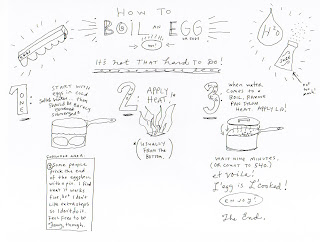 HOW TO
BOIL AN EGG
OR EGGS
HOT!
H2O
SALT
it's not that hard to do!
1 ONE:
START WITH
eggs in cold
salted water. They
should be barely
submerged.
2 APPLY
HEAT.
(USUALLY
FROM THE
BOTTOM.)
3 when water
comes to a
boil, remove
pan from
heat. APPLY LID!
WAIT NINE MINUTES.
(OR COUNT TO 540.)
et Voila!
l'egg is cooked!
enjoy!
The End.
Some people
prick the end
of the eggshell
with a pin. I find
that it works
fine, but I don't
like extra steps
so I don't do it.
Feel free to be
though.